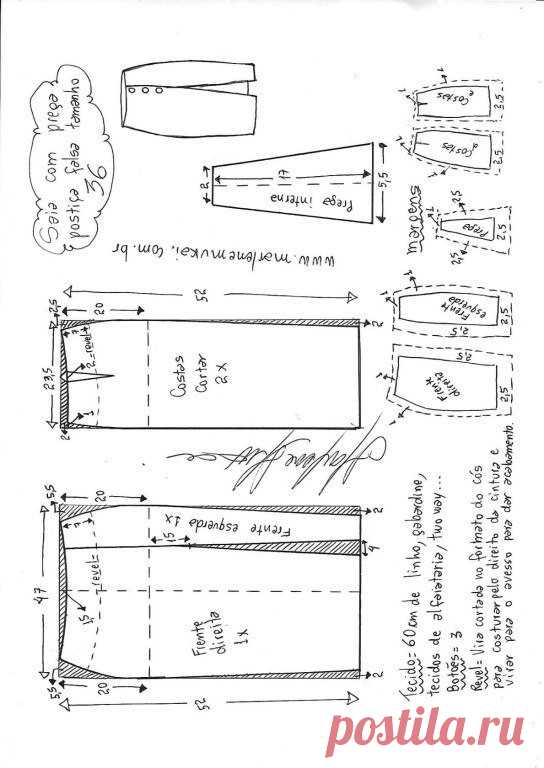 Saia com prega
postiça falsa tamanho
36
www.marlenemukai.com.br
2
17
5,5
Prega interna
52
20
2,5
23,5
2
3
7
2=revel=
Costas
Cortar
2x
2
52
20
5,5
47
5,5
20
15
7
revel=
15
4
2
2
Frente esquerda 1x
Frente
direita
1x
52
margens
1
Costas
2,5
1
Costas
2,5
1
Prega
2,5
2,5
2,5
1
Frente
esquerda
2,5
2,5
1
Frente
direita
2,5
2,5
Tecido= 60cm de linho, gabardine,
tecidos de alfaiataria, two way...
Botões= 3
Revel= Tira cortada no formato do cós
para costurar pelo direito da cintura e
virar para o avesso para dar acabamento.
postila.ru